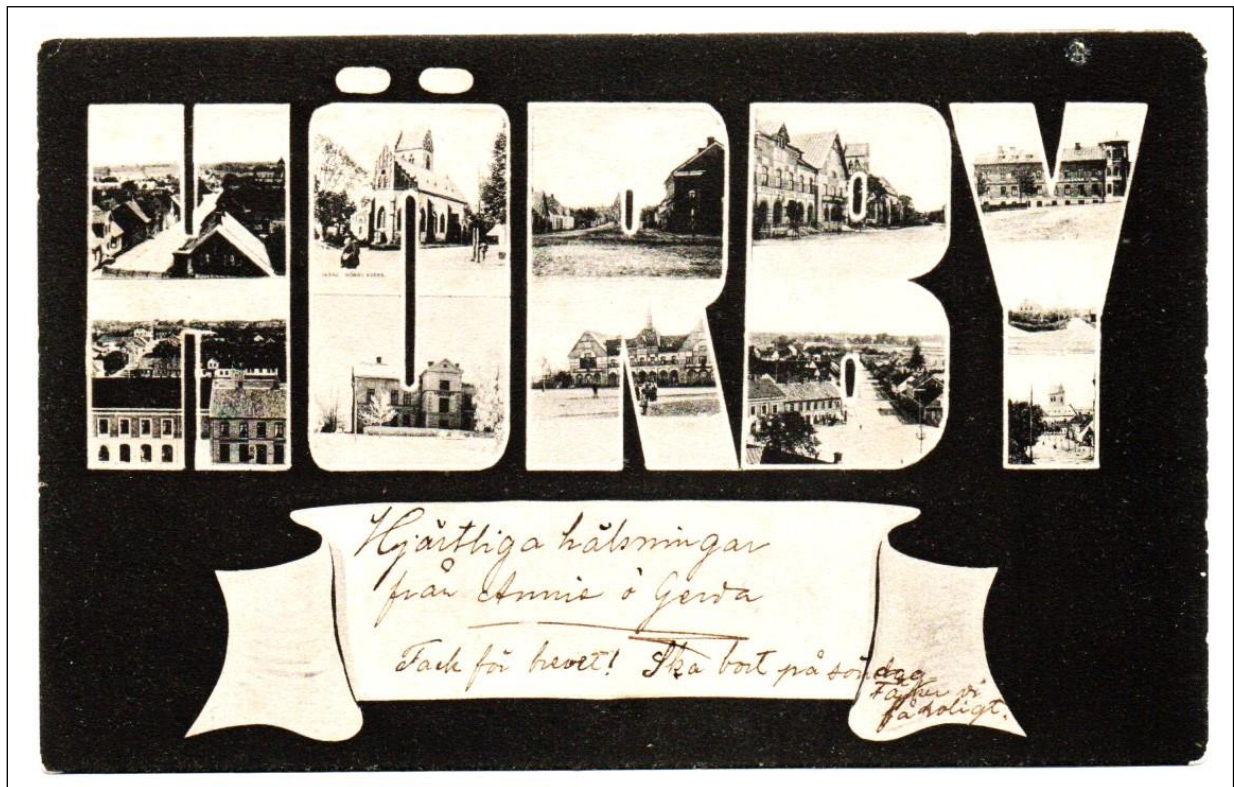 HÖRBY
Hjärtliga hälsningar
från Annie o Gerda
Tack för brevet! Ska bort på söndag
få roligt.